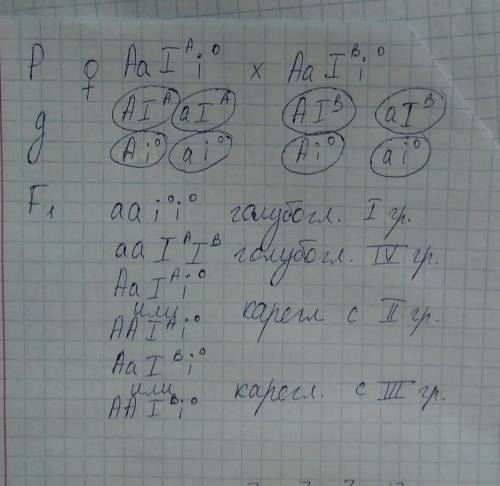 P ♀ Aa I^A i^0 x Aa I^B i^0
g AI^A aI^A AI^B aI^B
Ai^0 ai^0 Ai^0 ai^0
F₁ aa i^0 i^0 голубогл. I гр.
aa I^A I^B голубогл. IV гр.
Aa I^A i^0
или карегл с II гр.
AA I^A i^0
Aa I^B i^0
или карегл. с III гр.
AA I^B i^0